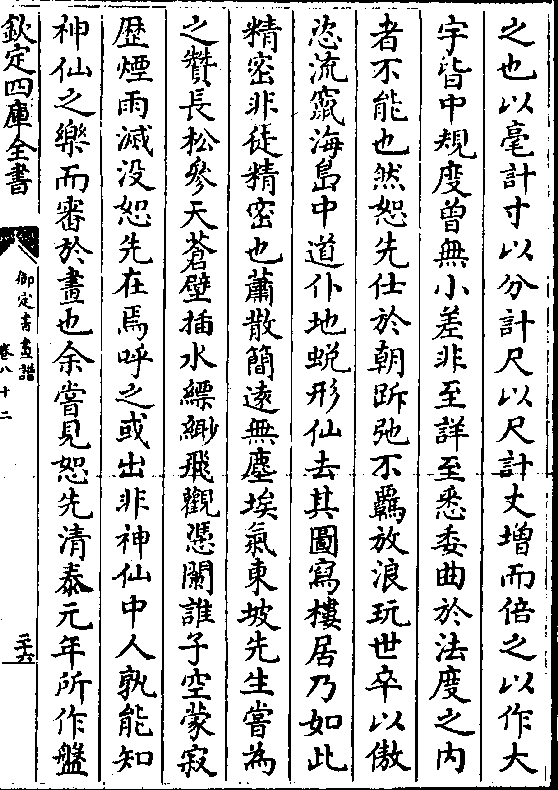 之也以毫計寸以分計尺以尺計丈增而倍之以作大
宇皆中規度曾無小差非至詳至悉委曲於法度之内
者不能也然恕先仕於朝跅弛不羈放浪玩世卒以傲
恣流竄海島中道仆地蛻形仙去其圖寫樓居乃如此
精密非徒精密也蕭散簡遠無塵埃氣東坡先生嘗為
之贊長松參天蒼壁插水縹緲飛觀憑闌誰子空蒙寂
歴煙雨滅没恕先在焉呼之或出非神仙中人孰能知
神仙之樂而審於畫也余嘗見恕先清泰元年所作盤
欽定四庫全書
御定書畫譜
卷八十二
三十六